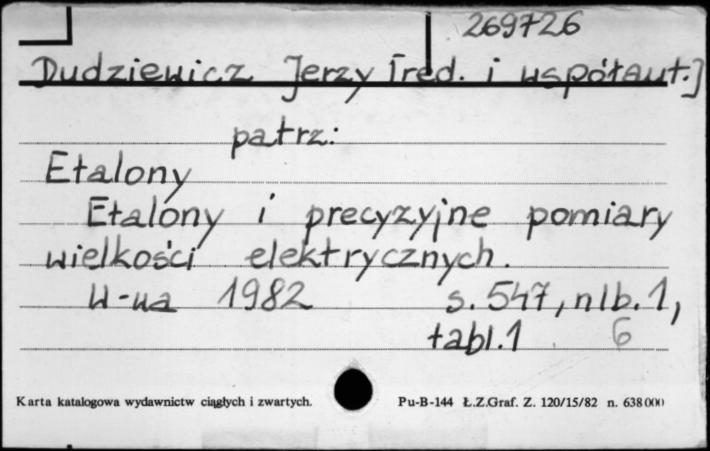 269726
Dudziewicz Jerzy [red. i współaut.]
patrz:
Etalony
Etalony i precyzyjne pomiary
wielkości elektrycznych.
W-wa 1982 s. 547, nlb. 1,
tabl. 1 6
Karta katalogowa wydawnictw ciągłych i zwartych. Pu-B-144 Ł.Z.Graf. Z. 120/15/82 n. 638 000